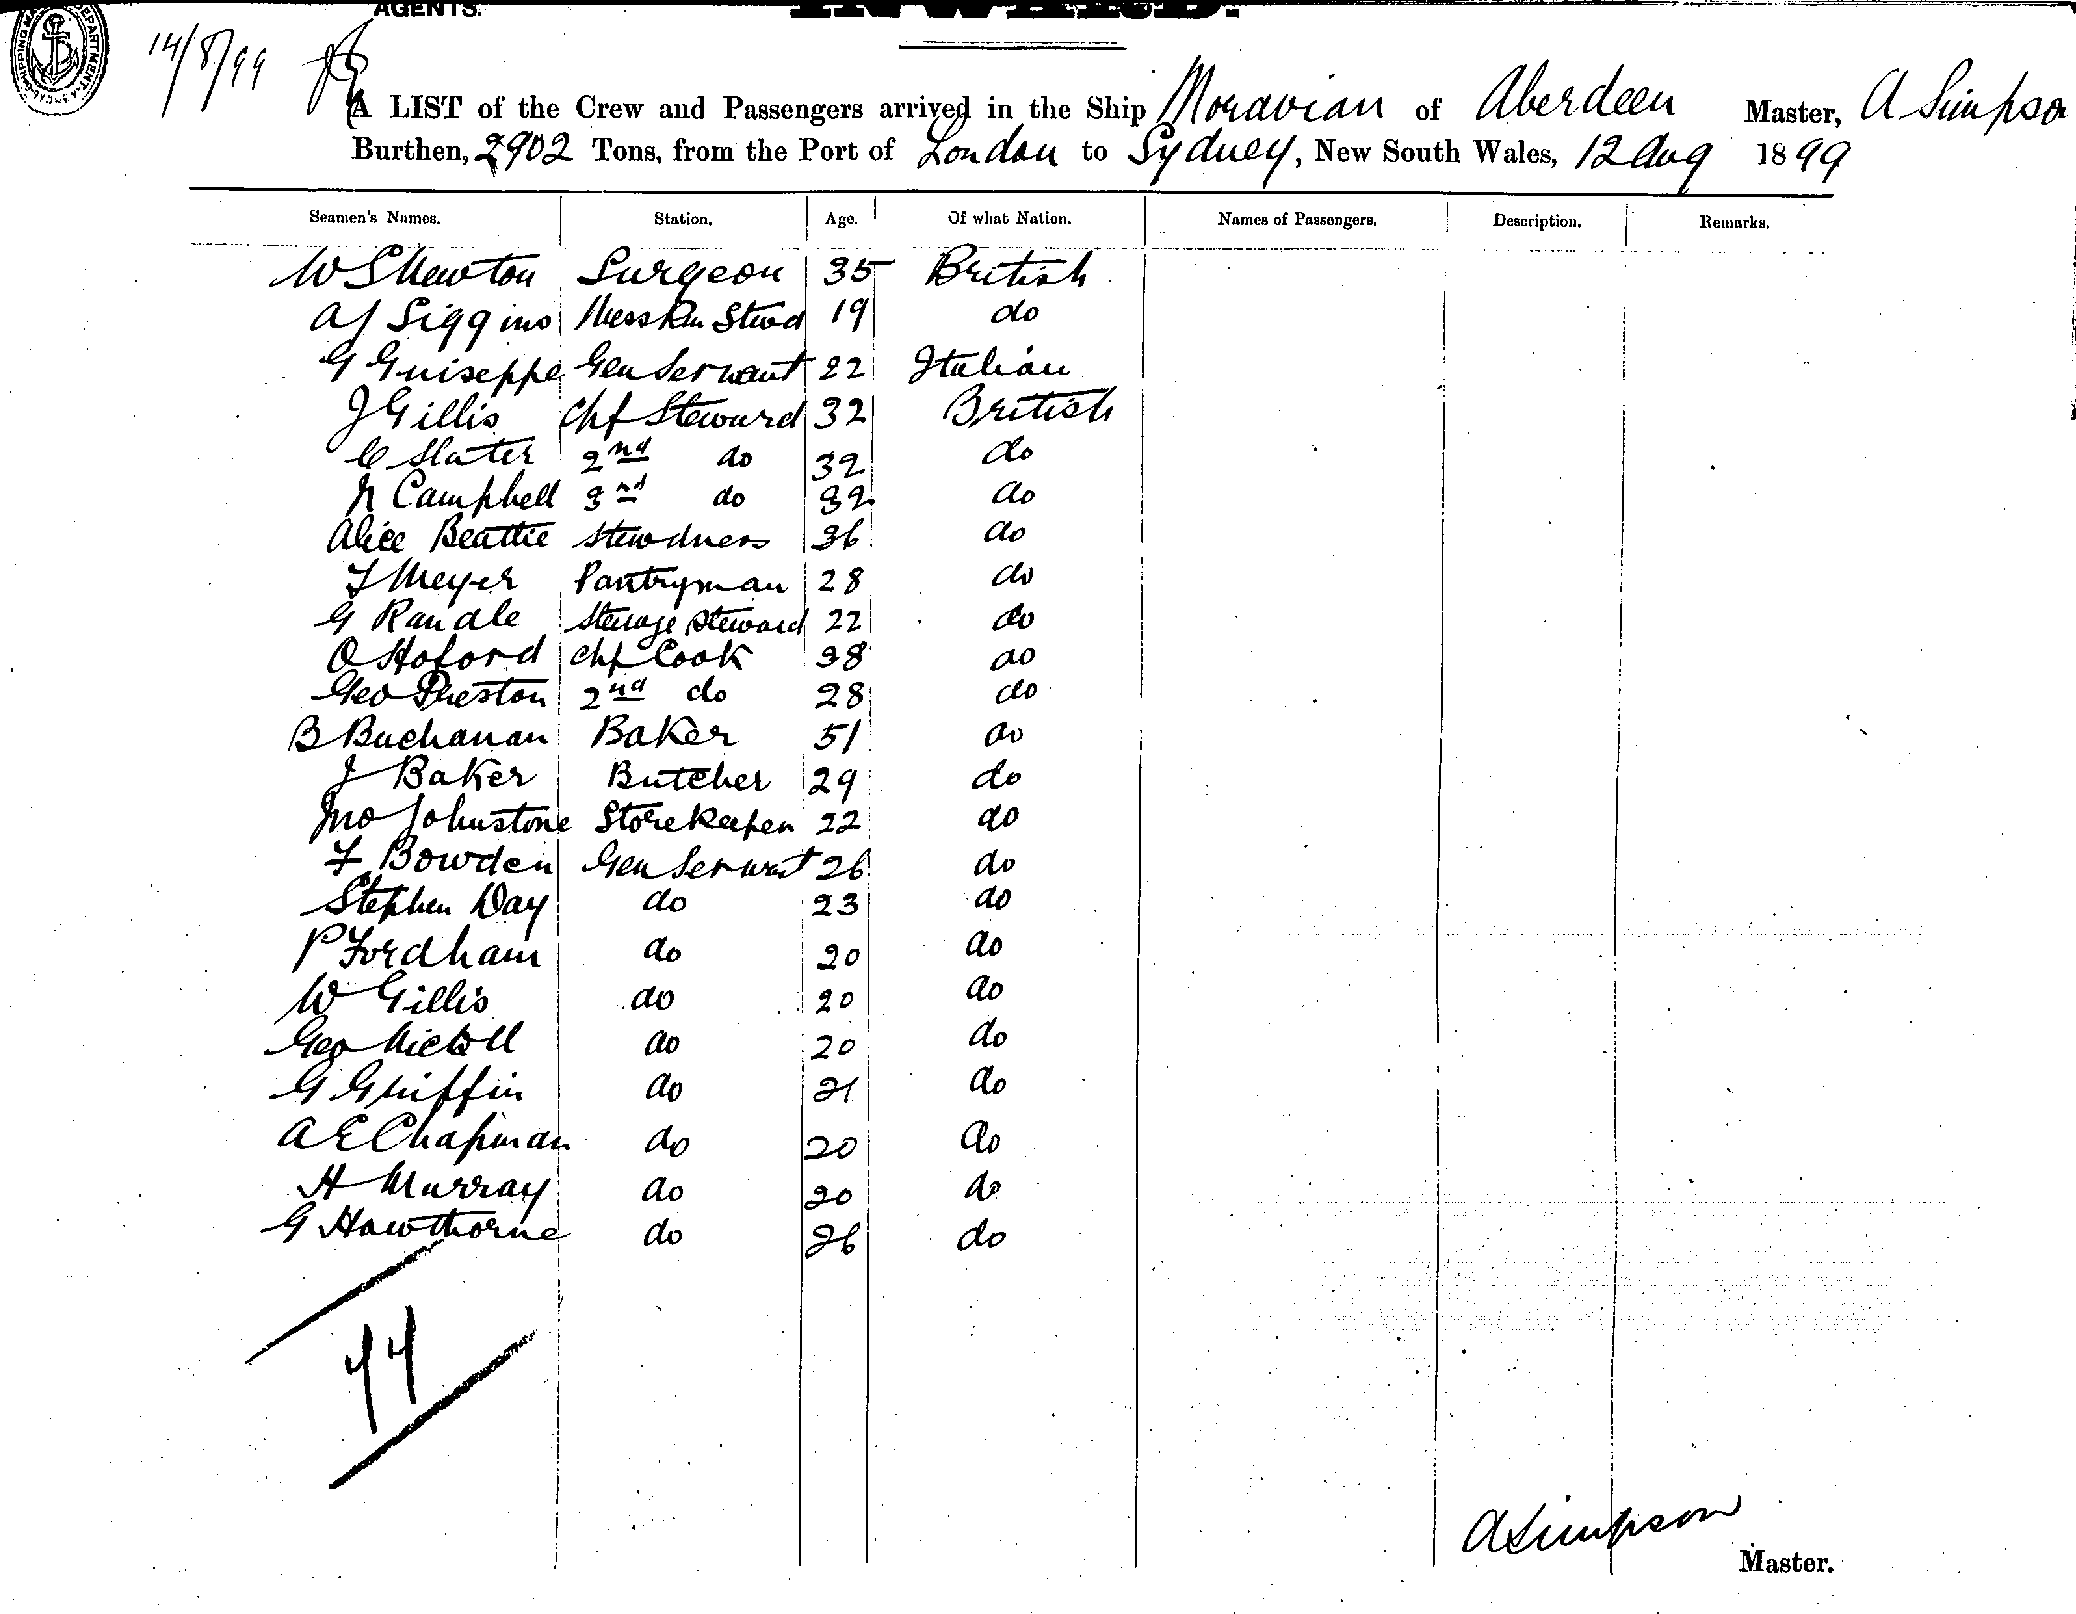 AGENTS.
INWARD.
14/8/99
A LIST of the Crew and Passengers arrived in the Ship Moravian of Aberdeen Master, A Simpson
Burthen, 2902 Tons, from the Port of London to Sydney, New South Wales, 12 Aug 1899
Seamen's Names. Station. Age. Of what Nation. Names of Passengers. Description. Remarks.
W S Newton Surgeon 35 British
A J Siggins Mess Rm Stwd 19 do
G Guiseppe Gen Servant 22 Italian
J Gillis Chf Steward 32 British
C Slater 2nd do 32 do
N Campbell 3rd do 32 do
Alice Beattie Stewdness 36 do
F Meyer Pantryman 28 do
G Randle Sterage Steward 22 do
O Hoford Chf Cook 38 do
Geo Preston 2nd do 28 do
B Buchanan Baker 51 do
J Baker Butcher 29 do
Jno Johnstone Storekeeper 22 do
F Bowden Gen Servant 26 do
Stephen Day do 23 do
P Fordham do 20 do
W Gillis do 20 do
Geo Nicholl do 20 do
G Griffin do 21 do
A E Chapman do 20 do
H Murray do 20 do
G Hawthorne do 26 do
44
A Simpson
Master.